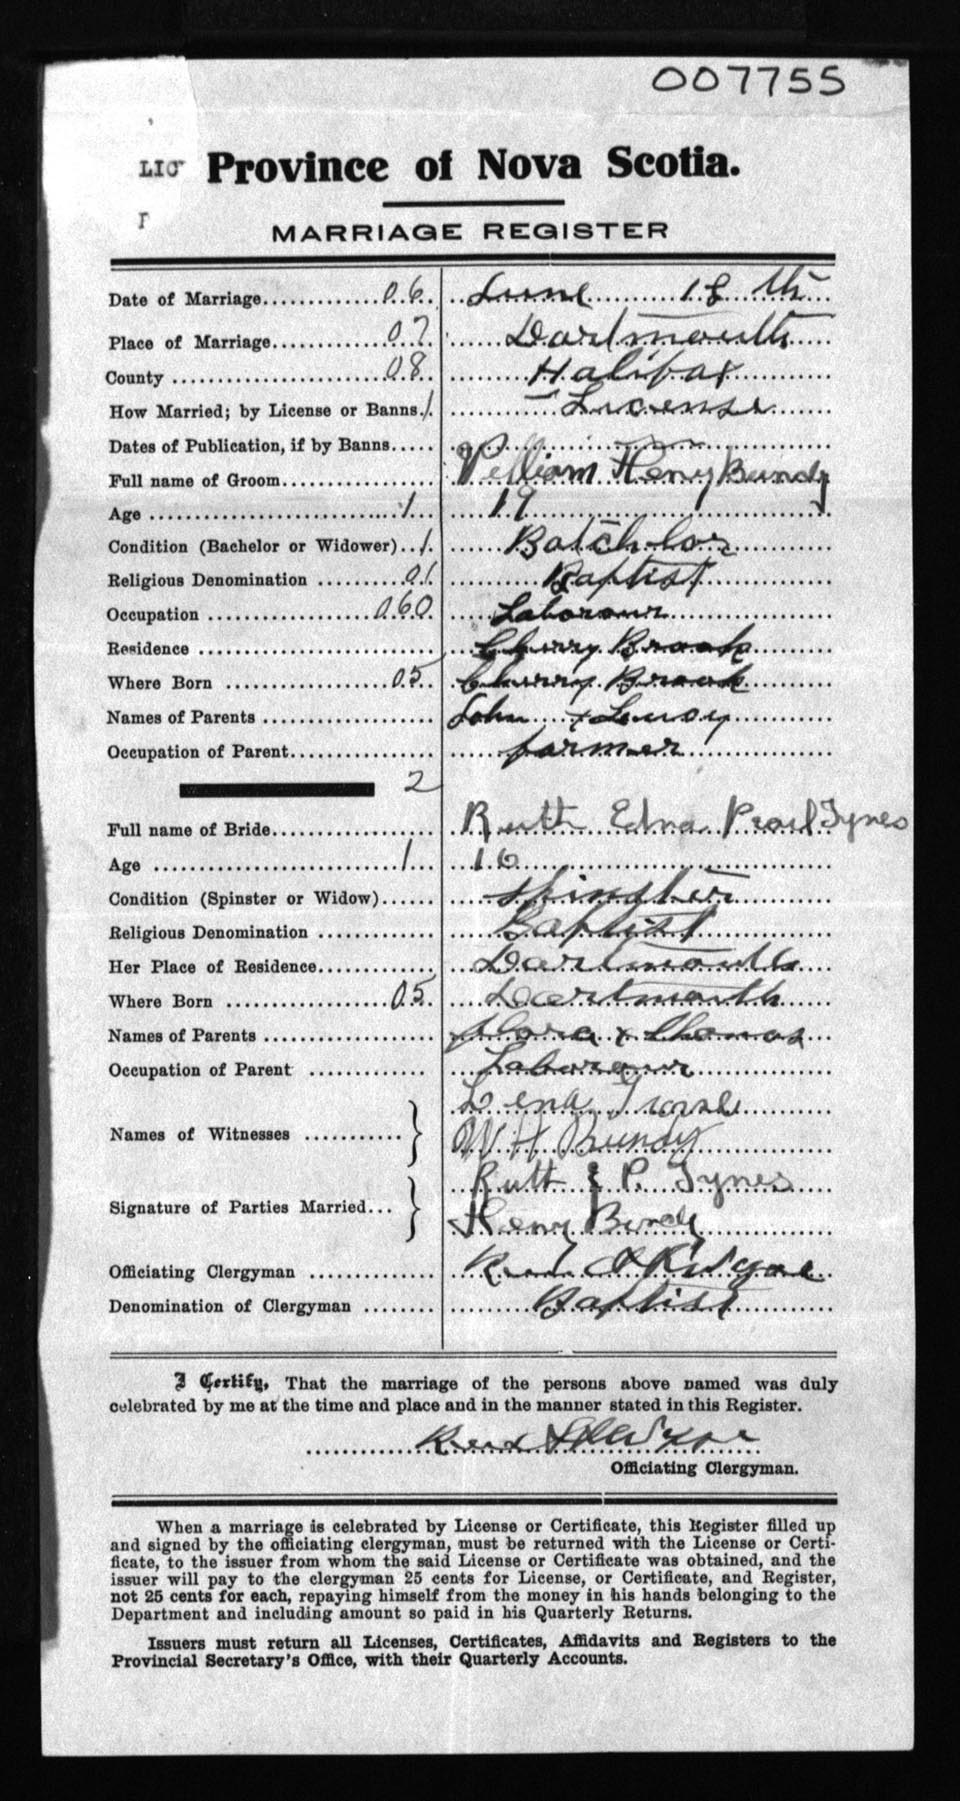 007755
LIC
Province of Nova Scotia.
MARRIAGE REGISTER
Date of Marriage............06. June 18 th
Place of Marriage............07. Dartmouth
County ............08. Halifax
How Married; by License or Banns.1. License
Dates of Publication, if by Banns.....
Full name of Groom................ William Henry Bundy
Age ............1... 19
Condition (Bachelor or Widower)..1. Batchlor
Religious Denomination .........01 Baptist
Occupation ............060. Labourour
Residence ............ Cherry Brook
Where Born ............05. Cherry Brook
Names of Parents ............ John + Lucy
Occupation of Parent............ farmer
2
Full name of Bride............ Ruth Edna Pearl Tynes
Age ............1... 16
Condition (Spinster or Widow)...... Spingster
Religious Denomination ............ Baptist
Her Place of Residence............ Dartmouth
Where Born ............05. Dartmouth
Names of Parents ............ Flora + Thomas
Occupation of Parent ............ Labourour
Lena
Names of Witnesses ............ W H Bundy
Ruth E P. Tynes
Signature of Parties Married... Henry Bundy
Officiating Clergyman ............ Rev.
Denomination of Clergyman ......... Baptist
I Certify, That the marriage of the persons above named was duly
celebrated by me at the time and place and in the manner stated in this Register.
Rev
Officiating Clergyman.
When a marriage is celebrated by License or Certificate, this Register filled up
and signed by the officiating clergyman, must be returned with the License or Certi-
ficate, to the issuer from whom the said License or Certificate was obtained, and the
issuer will pay to the clergyman 25 cents for License, or Certificate, and Register,
not 25 cents for each, repaying himself from the money in his hands belonging to the
Department and including amount so paid in his Quarterly Returns.
Issuers must return all Licenses, Certificates, Affidavits and Registers to the
Provincial Secretary's Office, with their Quarterly Accounts.